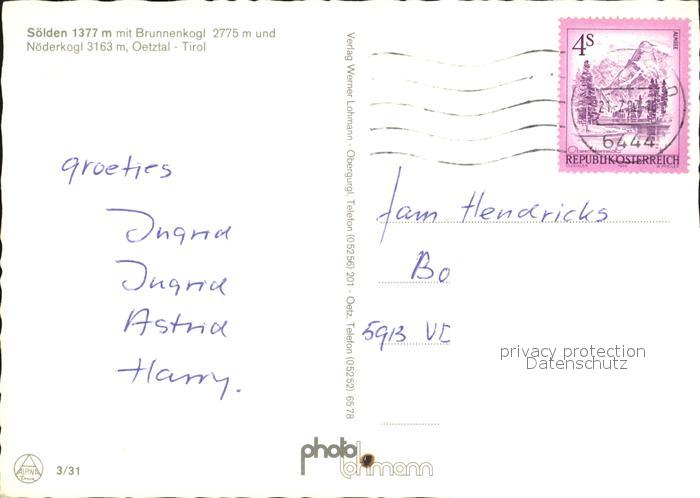 Sölden 1377 m mit Brunnenkogl 2775 m und
Nöderkogl 3163 m, Oetztal - Tirol
groetjes
Ingrid
Ingrid
Astrid
Harry.
3/31
Verlag Werner Lohmann - Obergurgl, Telefon (05256) 201 - Oetz, Telefon (05252) 6578
photo
lohmann
4s
ALMSEE
6444
REPUBLIK ÖSTERREICH
fam Hendricks
Bo
5913 VD
privacy protection
Datenschutz